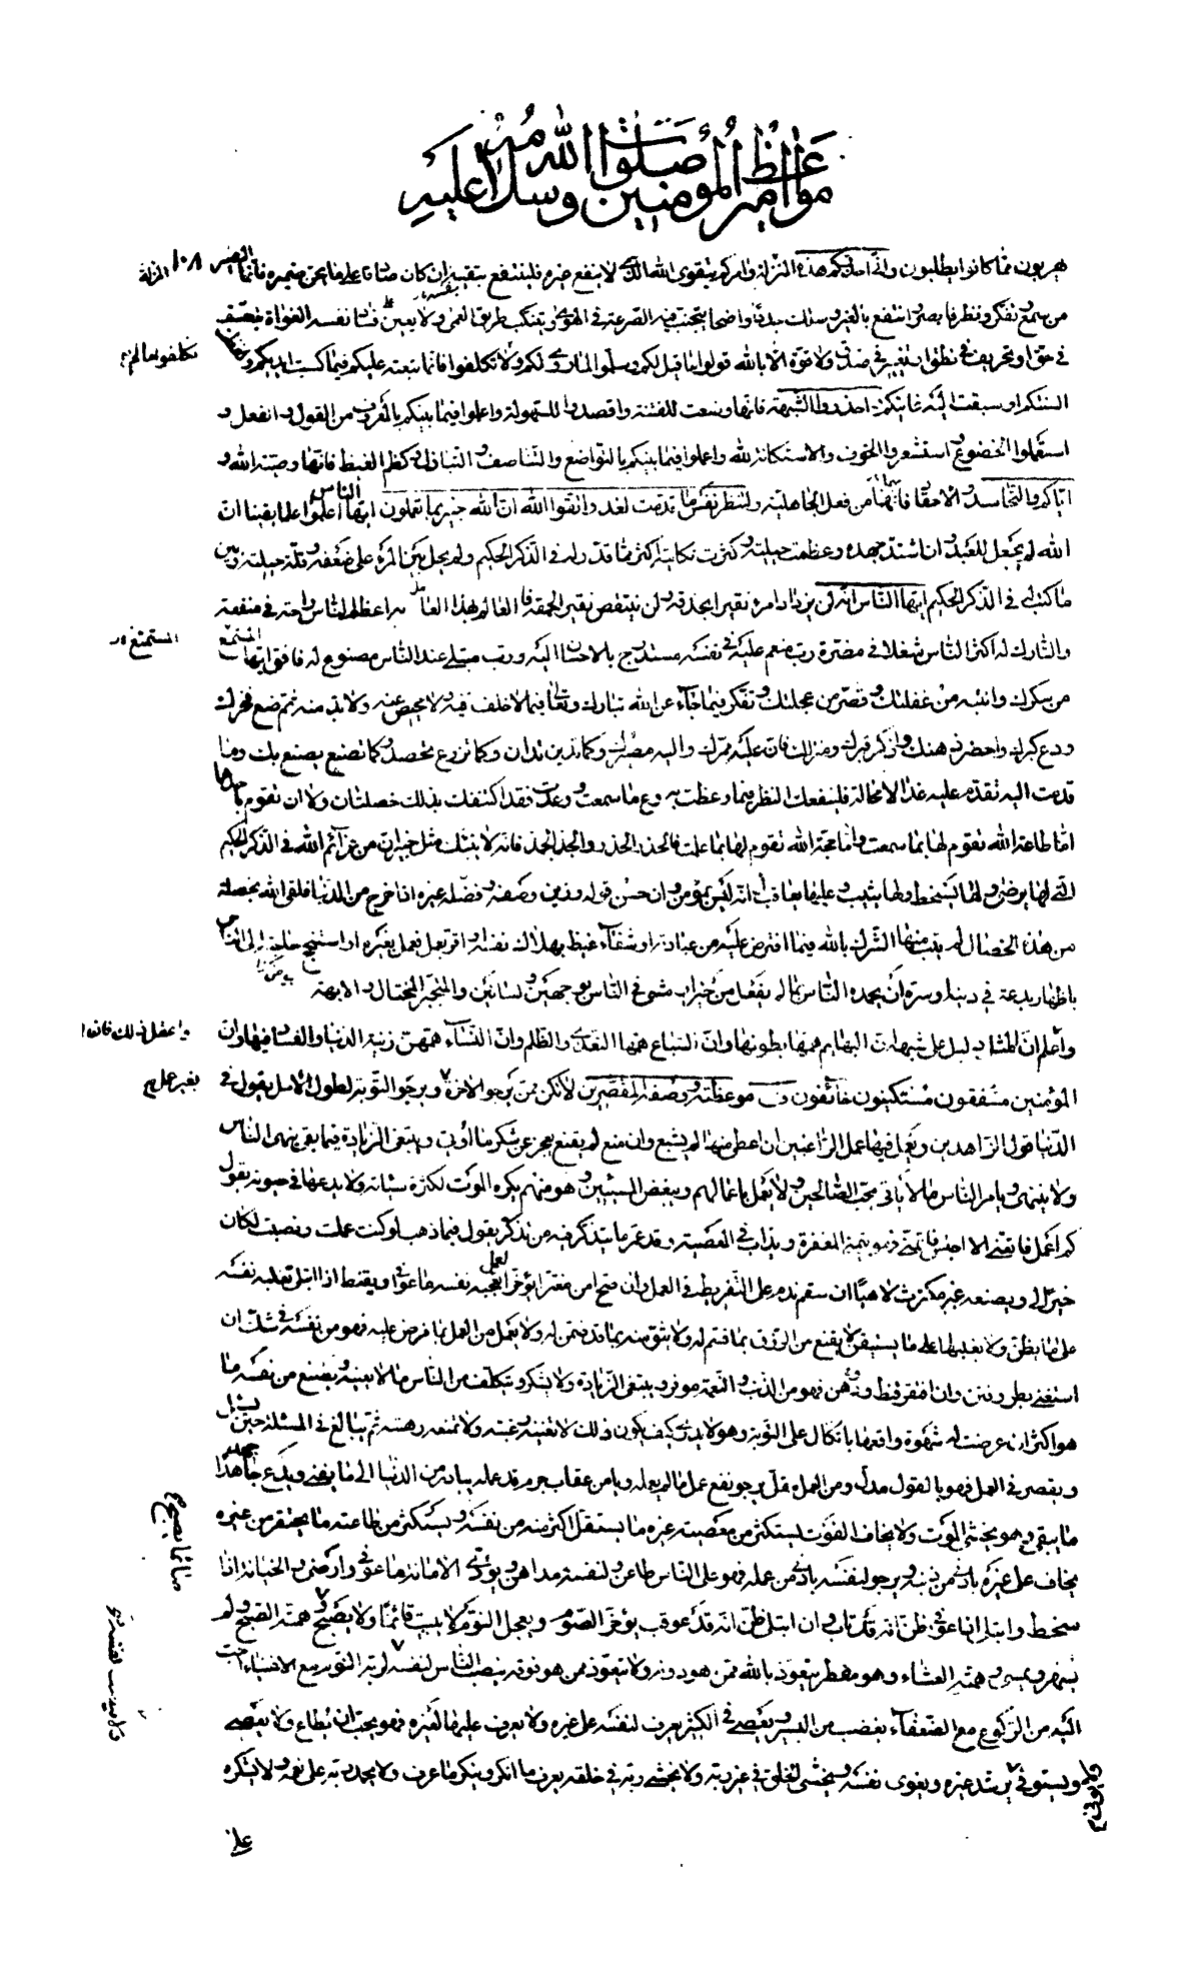 مواعظ أمير المؤمنين صلوات الله وسلامه عليه
هربون مما كانوا يطلبون واني احذركم هذه المنزلة وامركم بتقوى الله الذي لا ينفع غيره فلينتفع بنفسه ان كان صادقا على ما يجن ضميره فانما البصير
من سمع وتفكر ونظر فابصر وانتفع بالعبر وسلك جددا واضحا يتجنب فيه الصرعة في الهوى ويتنكب طريق العمى ولا يعين على فساد نفسه الغواة بتعسف
في حق او تحريف في نطق او تغيير في صدق ولا قوة الا بالله قولوا ما قيل لكم وسلموا لما روي لكم ولا تكلفوا فانما تبعته عليكم فيما كسبت ايديكم ولفظت
السنتكم او سبقت اليه غايتكم احذروا الشبهة فانها وضعت للفتنة واقصدوا السهولة واعملوا فيما بينكم بالمعروف من القول والفعل و
استعملوا الخضوع واستشعروا الخوف والاستكانة لله واعملوا فيما بينكم بالتواضع والتناصف والتباذل وكظم الغيظ فانها وصية الله و
اياكم والتحاسد والاحقاد فانهما من فعل الجاهلية ولتنظر نفس ما قدمت لغد واتقوا الله ان الله خبير بما تعملون ايها الناس اعلموا علما يقينا ان
الله لم يجعل للعبد وان اشتد جهده وعظمت حيلته وكثرت نكايته اكثر مما قدر له في الذكر الحكيم ولم يحل بين المرء على ضعفه وقلة حيلته وبين
ما كتب له في الذكر الحكيم ايها الناس انه لن يزداد امرء نقيرا بحذقه ولن ينتقص نقيرا لحمقه فالعالم بهذا العامل به اعظم الناس راحة في منفعة
والتارك له اكثر الناس شغلا في مضرة رب منعم عليه في نفسه مستدرج بالاحسان اليه ورب مبتلى عند الناس مصنوع له فافق ايها المستمع
من سكرك وانتبه من غفلتك وقصر من عجلتك وتفكر فيما جاء عن الله تبارك وتعالى فيما لا خلف فيه ولا محيص عنه ولا بد منه ثم ضع فخرك
ودع كبرك واحضر ذهنك واذكر قبرك ومنزلك فان عليه ممرك واليه مصيرك وكما تدين تدان وكما تزرع تحصد وكما تصنع يصنع بك وما
قدمت اليه تقدم عليه غدا لا محالة فلينفعك النظر فيما وعظت به وع ما سمعت ووعدت فقد اكتنفك بذلك خصلتان ولا بد ان تقوم باحدهما
اما طاعة الله تقوم لها بما سمعت واما حجة الله تقوم لها بما علمت فالحذر الحذر والجد الجد فانه لا ينبئك مثل خبير ان من عزائم الله في الذكر الحكيم
التي لها يرضى ولها يسخط ولها يثيب وعليها يعاقب انه ليس بمؤمن وان حسن قوله وزين وصفه وفضله غيره اذا خرج من الدنيا فلقي الله بخصلة
من هذه الخصال لم يتب منها الشرك بالله فيما افترض عليه من عبادته او شفاء غيظ بهلاك نفسه او اقر بعمل فعمل بغيره او استنجح حاجة الى الناس
باظهار بدعة في دينه او سره ان يحمده الناس بما لم يفعل من خير او مشى في الناس بوجهين ولسانين والتجبر المختال والابهة
واعلم ان المثل دليل على شبهه ان البهائم همها بطونها وان السباع همها التعدي والظلم وان النساء همهن زينة الدنيا والفساد فيها وان
المؤمنين مشفقون مستكينون خائفون ومن موعظته وصفة المقصرين لا تكن ممن يرجو الآخرة ويرجو التوبة لطول الامل يقول في
الدنيا قول الزاهدين ويعمل فيها عمل الراغبين ان اعطي منها لم يشبع وان منع لم يقنع يعجز عن شكر ما اوتي ويبتغي الزيادة فيما بقي ينهى الناس
ولا ينتهي ويامر الناس ما لا ياتي يحب الصالحين ولا يعمل باعمالهم ويبغض المسيئين وهو منهم يكره الموت لكثرة سيئاته ولا يدعها في حيوته يقول
كم اعمل فاتعنى الا اجلس فاتمنى فهو يتمنى المغفرة ويداب في المعصية وقد عمر ما يتذكر فيه من تذكر يقول فيما ذهب لو كنت عملت ونصبت لكان
خيرا لي ويصنعه غير مكترث لاهيا ان سقم ندم على التفريط في العمل وان صح امن مغترا يؤخر العمل تعجبه نفسه ما عوفي ويقنط اذا ابتلي تغلبه نفسه
على ما يظن ولا يغلبها على ما يستيقن لا يقنع من الرزق بما قسم له ولا يثق منه بما قد ضمن له ولا يعمل من العمل بما فرض عليه فهو من نفسه في شك ان
استغنى بطر وفتن وان افتقر قنط ووهن فهو من الذنب والنعمة موفر ويبتغي الزيادة ولا يشكر ويتكلف من الناس ما لا يعنيه ويصنع من نفسه ما
هو اكثر ان عرضت له شهوة واقعها باتكال على التوبة وهو لا يدري كيف يكون ذلك لا تغنيه رغبته ولا تمنعه رهبته ثم يبالغ في المسئلة حين يسئل
ويقصر في العمل فهو بالقول مدل ومن العمل مقل يرجو نفع عمل ما لم يعمله ويامن عقاب جرم قد عمله يبادر من الدنيا الى ما يفنى ويدع جاهدا
ما يبقى وهو يخشى الموت ولا يخاف الفوت يستكثر من معصية غيره ما يستقل اكثر منه من نفسه ويستكثر من طاعته ما يحتقر من غيره
يخاف على غيره بادنى من ذنبه ويرجو لنفسه بادنى من عمله فهو على الناس طاعن ولنفسه مداهن يؤدي الامانة ما عوفي وارضي والخيانة اذا
سخط وابتلي اذا عوفي ظن انه قد تاب وان ابتلي ظن انه قد عوقب يؤخر الصوم ويعجل النوم لا يبيت قائما ولا يصبح همته الصبح ولم
يسهر ويمسي وهمته العشاء وهو مفطر يتعوذ بالله ممن هو دونه ولا يتعوذ ممن هو فوقه ينصب الناس لنفسه لربه النوم مع الاغنياء احب
اليه من الركوع مع الضعفاء يغضب من اليسير ويعصي في الكثير يعرف لنفسه على غيره ولا يعرف عليها لغيره فهو يحب ان يطاع ولا يعصى
ويستوفي يرشد غيره ويغوي نفسه ويخشى الخلق في غير ربه ولا يخشى ربه في خلقه يعرف ما انكر وينكر ما عرف ولا يحمد ربه على نعمه ولا يشكره
على
١٠٨
المزلة
المستمتع
بغير عمل
صائما يصبح